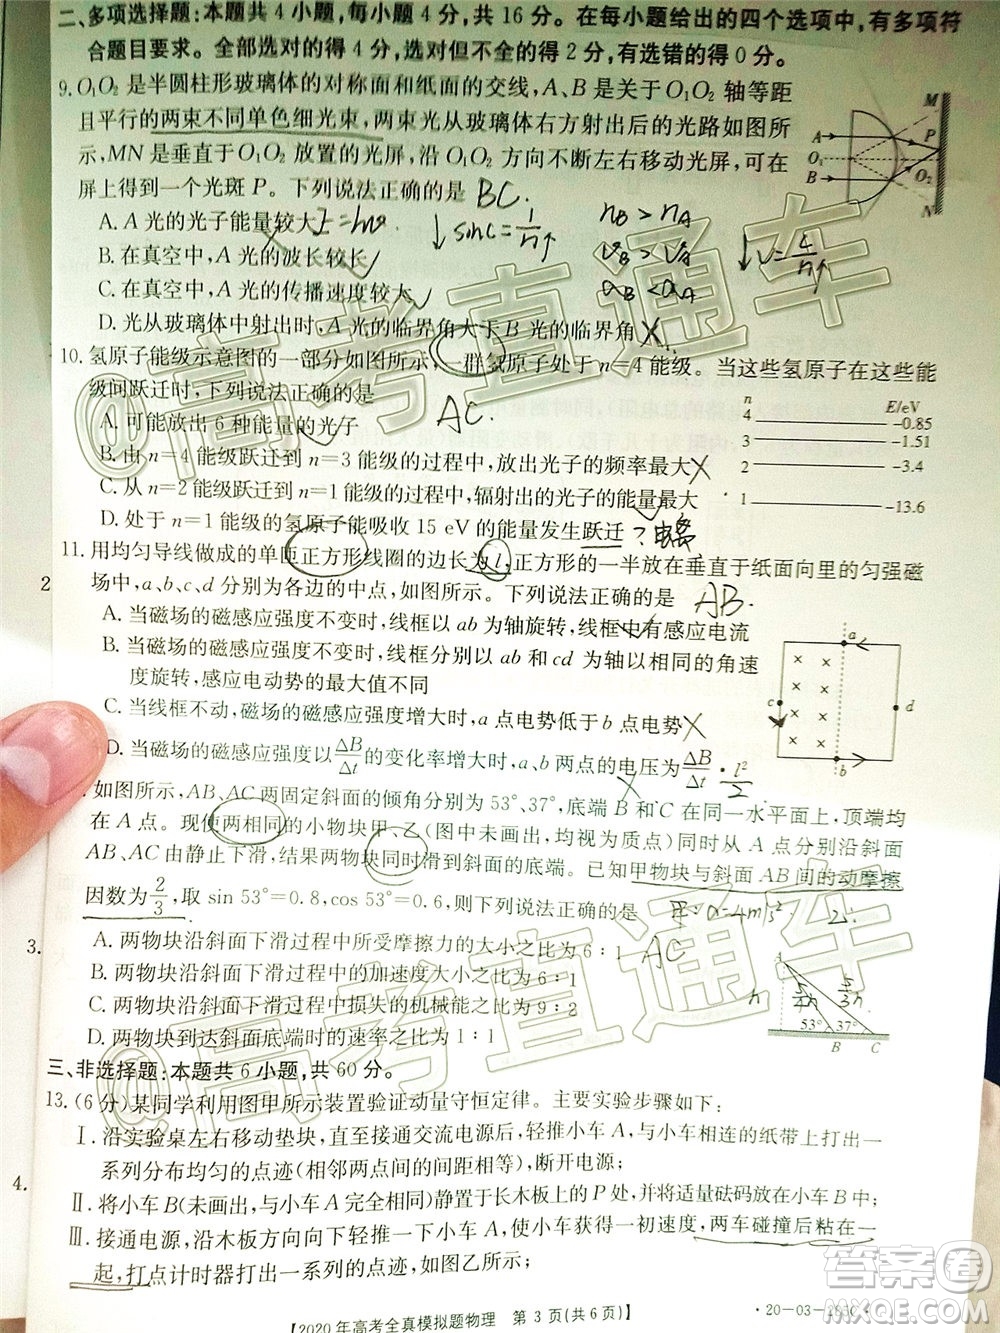 二、多项选择题:本题共4小题,每小题4分,共16分。在每小题给出的四个选项中,有多项符
合题目要求。全部选对的得4分,选对但不全的得2分,有选错的得0分。
9. O₁O₂ 是半圆柱形玻璃体的对称面和纸面的交线,A、B 是关于 O₁O₂ 轴等距
且平行的两束不同单色细光束,两束光从玻璃体右方射出后的光路如图所
示,MN 是垂直于 O₁O₂ 放置的光屏,沿 O₁O₂ 方向不断左右移动光屏,可在
屏上得到一个光斑 P。下列说法正确的是 BC.
A. A 光的光子能量较大
B. 在真空中,A 光的波长较长
C. 在真空中,A 光的传播速度较大
D. 光从玻璃体中射出时,A 光的临界角大于 B 光的临界角
↓sinC=1/n↑
n_B > n_A
M
A
O₁
B
P
O₂
N
10. 氢原子能级示意图的一部分如图所示,一群氢原子处于 n=4 能级。当这些氢原子在这些能
级间跃迁时,下列说法正确的是 AC.
A. 可能放出 6 种能量的光子
B. 由 n=4 能级跃迁到 n=3 能级的过程中,放出光子的频率最大
C. 从 n=2 能级跃迁到 n=1 能级的过程中,辐射出的光子的能量最大
D. 处于 n=1 能级的氢原子能吸收 15 eV 的能量发生跃迁
n E/eV
4 -0.85
3 -1.51
2 -3.4
1 -13.6
11. 用均匀导线做成的单匝正方形线圈的边长为 l,正方形的一半放在垂直于纸面向里的匀强磁
场中,a、b、c、d 分别为各边的中点,如图所示。下列说法正确的是 AB.
A. 当磁场的磁感应强度不变时,线框以 ab 为轴旋转,线框中有感应电流
B. 当磁场的磁感应强度不变时,线框分别以 ab 和 cd 为轴以相同的角速
度旋转,感应电动势的最大值不同
C. 当线框不动,磁场的磁感应强度增大时,a 点电势低于 b 点电势
D. 当磁场的磁感应强度以 ΔB/Δt 的变化率增大时,a、b 两点的电压为 ΔB/Δt · l²/2
a
c
d
b
. 如图所示,AB、AC 两固定斜面的倾角分别为 53°、37°,底端 B 和 C 在同一水平面上,顶端
在 A 点。现使两相同的小物块甲、乙(图中未画出,均视为质点)同时从 A 点分别沿斜面
AB、AC 由静止下滑,结果两物块同时滑到斜面的底端。已知甲物块与斜面 AB 间的动摩擦
因数为 2/3,取 sin 53°=0.8,cos 53°=0.6,则下列说法正确的是 AC
A. 两物块沿斜面下滑过程中所受摩擦力的大小之比为 6∶1
B. 两物块沿斜面下滑过程中的加速度大小之比为 6∶1
C. 两物块沿斜面下滑过程中损失的机械能之比为 9∶2
D. 两物块到达斜面底端时的速率之比为 1∶1
A
53° 37°
B C
三、非选择题:本题共 6 小题,共 60 分。
13. (6 分)某同学利用图甲所示装置验证动量守恒定律。主要实验步骤如下:
Ⅰ. 沿实验桌左右移动垫块,直至接通交流电源后,轻推小车 A,与小车相连的纸带上打出一
系列分布均匀的点迹(相邻两点间的间距相等),断开电源;
Ⅱ. 将小车 B(未画出,与小车 A 完全相同)放在长木板上的 P 处,并将适量砝码放在小车 B 中;
Ⅲ. 接通电源,沿木板方向轻推一下小车 A,使小车 A 获得某一初速度,两车碰撞后粘在一
起,打点计时器打出一系列的点迹,如图乙所示。
【2020年高考全真模拟题物理 第 3 页(共 6 页)】
2
3.
4.
@高考直通车
@高考直通车
答案圈
MXQE.COM